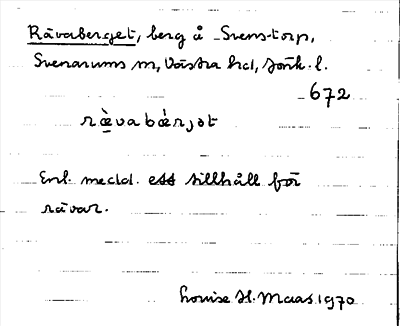 Rävaberget, berg å Svenstorp,
Svenarums sn, Västra hd, Jönk. l.
672
ræ̀vabær̀jət
Enl. medd. ett tillhåll för
rävar.
Louise H. Maas 1970